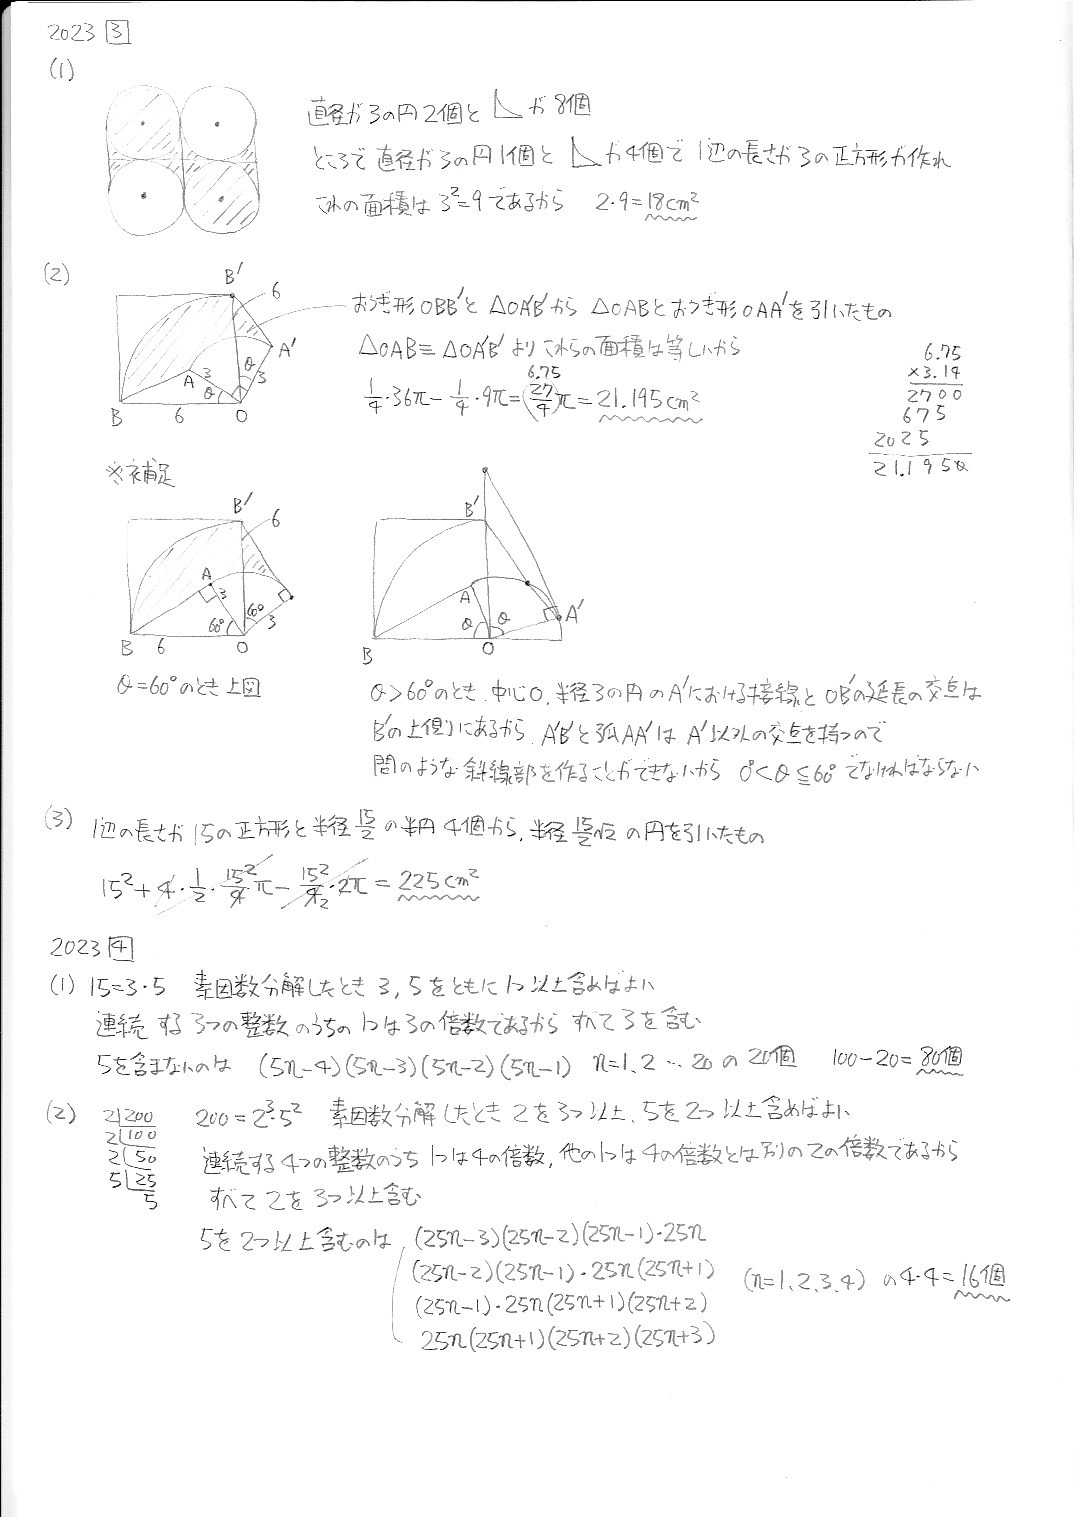 2023 3
(1)
直径が3の円2個と が8個
ところで 直径が3の円1個と が4個で 1辺の長さが3の正方形が作れ
これの面積は 3²=9であるから 2・9=18cm²
(2)
B' 6 A' A 3 θ θ 3 B 6 O
おうぎ形OBB'と △OA'B'から △OABとおうぎ形OAA'を引いたもの
△OAB≡△OA'B' よりこれらの面積は等しいから
1/4・36π-1/4・9π=(27/4)π=21.195cm²
6.75
6.75
×3.14
2700
675
2025
21.1950
※補足
B' 6 A 3 60° 60° 3 B 6 O
B' A A' θ θ B O
θ=60°のとき上図
θ>60°のとき、中心O、半径3の円のA'における接線とOB'の延長の交点は
B'の上側にあるから、A'B'と弧AA'は A'以外の交点を持つので
問のような斜線部を作ることができないから 0°<θ≦60°でなければならない
(3) 1辺の長さが15の正方形と半径15/2の半円4個から、半径15/2√2の円を引いたもの
15²+4・1/2・15²/4π-15²/4・2π=225cm²
2
2023 4
(1) 15=3・5 素因数分解したとき 3, 5をともに1つ以上含めばよい
連続する3つの整数のうちの1つは3の倍数であるから すべて3を含む
5を含まないのは (5n-4)(5n-3)(5n-2)(5n-1) n=1、2…20の20個 100-20=80個
(2)
2 200
2 100
2 50
5 25
5
200=2³・5² 素因数分解したとき 2を3つ以上、5を2つ以上含めばよい
連続する4つの整数のうち 1つは4の倍数, 他の1つは4の倍数とは別の2の倍数であるから
すべて2を3つ以上含む
5を2つ以上含むのは (25n-3)(25n-2)(25n-1)・25n
(25n-2)(25n-1)・25n(25n+1)
(25n-1)・25n(25n+1)(25n+2)
25n(25n+1)(25n+2)(25n+3)
(n=1、2、3、4) の4・4=16個